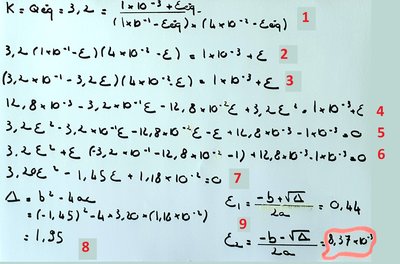 K = Qéq = 3,2 = (1×10⁻³ + εéq) / ((1×10⁻¹ - εéq) × (4×10⁻² - εéq)) 1
3,2 (1×10⁻¹ - ε)(4×10⁻² - ε) = 1×10⁻³ + ε 2
(3,2×10⁻¹ - 3,2ε)(4×10⁻² - ε) = 1×10⁻³ + ε 3
12,8×10⁻³ - 3,2×10⁻¹ε - 12,8×10⁻²ε + 3,2ε² = 1×10⁻³ + ε 4
3,2ε² - 3,2×10⁻¹ε - 12,8×10⁻²ε - ε + 12,8×10⁻³ - 1×10⁻³ = 0 5
3,2ε² + ε (-3,2×10⁻¹ - 12,8×10⁻² - 1) + 12,8×10⁻³ - 1×10⁻³ = 0 6
3,20ε² - 1,45ε + 1,18×10⁻² = 0 7
Δ = b² - 4ac
= (-1,45)² - 4×3,20×(1,18×10⁻²)
= 1,95
8
ε₁ = (-b + √Δ) / 2a = 0,44
9
ε₂ = (-b - √Δ) / 2a = 8,37×10⁻³